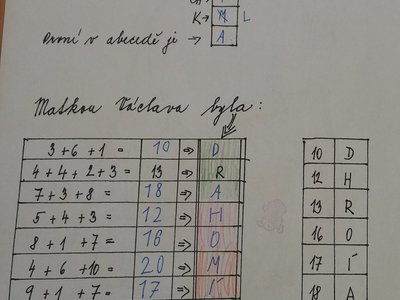 K → M L
První v abecedě je → A
Matkou Václava byla:
3 + 6 + 1 = 10 ⇒ D
4 + 4 + 2 + 3 = 13 ⇒ R
7 + 3 + 8 = 18 ⇒ A
5 + 4 + 3 = 12 ⇒ H
8 + 1 + 7 = 16 ⇒ O
4 + 6 + 10 = 20 ⇒ M
9 + 1 + 7 = 17 ⇒ Í
10 D
12 H
13 R
16 O
17 Í
18 A